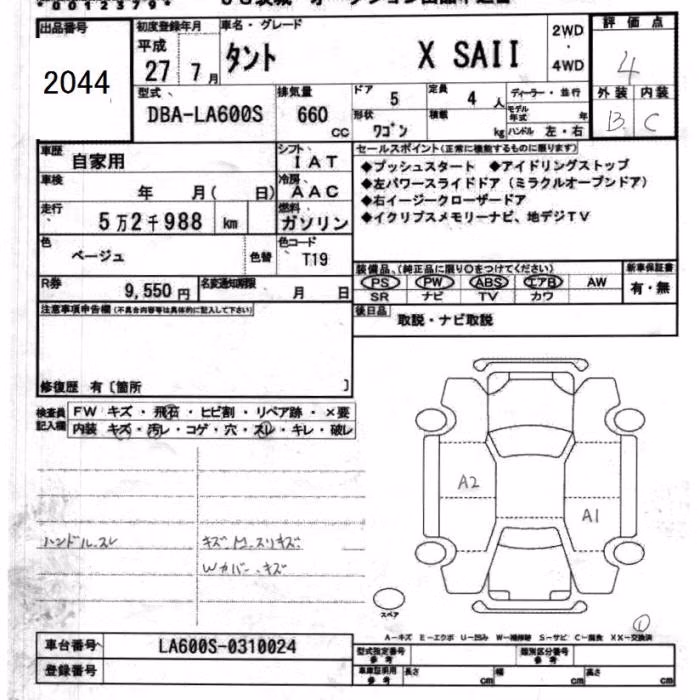 *00123798*
出品番号 初度登録年月 車名・グレード 2WD・4WD 評価点
2044 平成 27年 7月 タント X SAII 4
型式 排気量 ドア 定員 ディーラー・並行 外装 内装
DBA-LA600S 660 CC 5 4人 モデル年式 年 B C
形状 ワゴン 積載 kg ハンドル 左・右
車歴 自家用 シフト IAT セールスポイント(正常に機能するものに限ります)
車検 年 月( 日) 冷房 AAC ◆プッシュスタート ◆アイドリングストップ
◆左パワースライドドア(ミラクルオープンドア)
走行 5万2千988 km 燃料 ガソリン ◆右イージークローザードア
◆イクリプスメモリーナビ、地デジTV
色 ベージュ 色替 色コード T19
装備品、(純正品に限り○をつけてください) 新車保証書
R券 9,550円 名変通知期限 月 日 PS PW ABS エアB AW 有・無
SR ナビ TV カワ
注意事項申告欄(不具合内容等は具体的に記入して下さい) 後日品 取説・ナビ取説
修復歴 有〔箇所 〕
検査員記入欄 FW キズ・飛石・ヒビ割・リペア跡・×要
内装 キズ・汚レ・コゲ・穴・スレ・キレ・破レ
A2
A1
ハンドルスレ キズ、
Wカバー、キズ
スペア
1
A-キズ E-エクボ U-凹み W-補修跡 S-サビ C-腐食 XX-交換済
車台番号 LA600S-0310024 型式指定番号 参考 類別区分番号 参考
登録番号 車庫証明用 参考 長さ cm 幅 cm 高さ cm